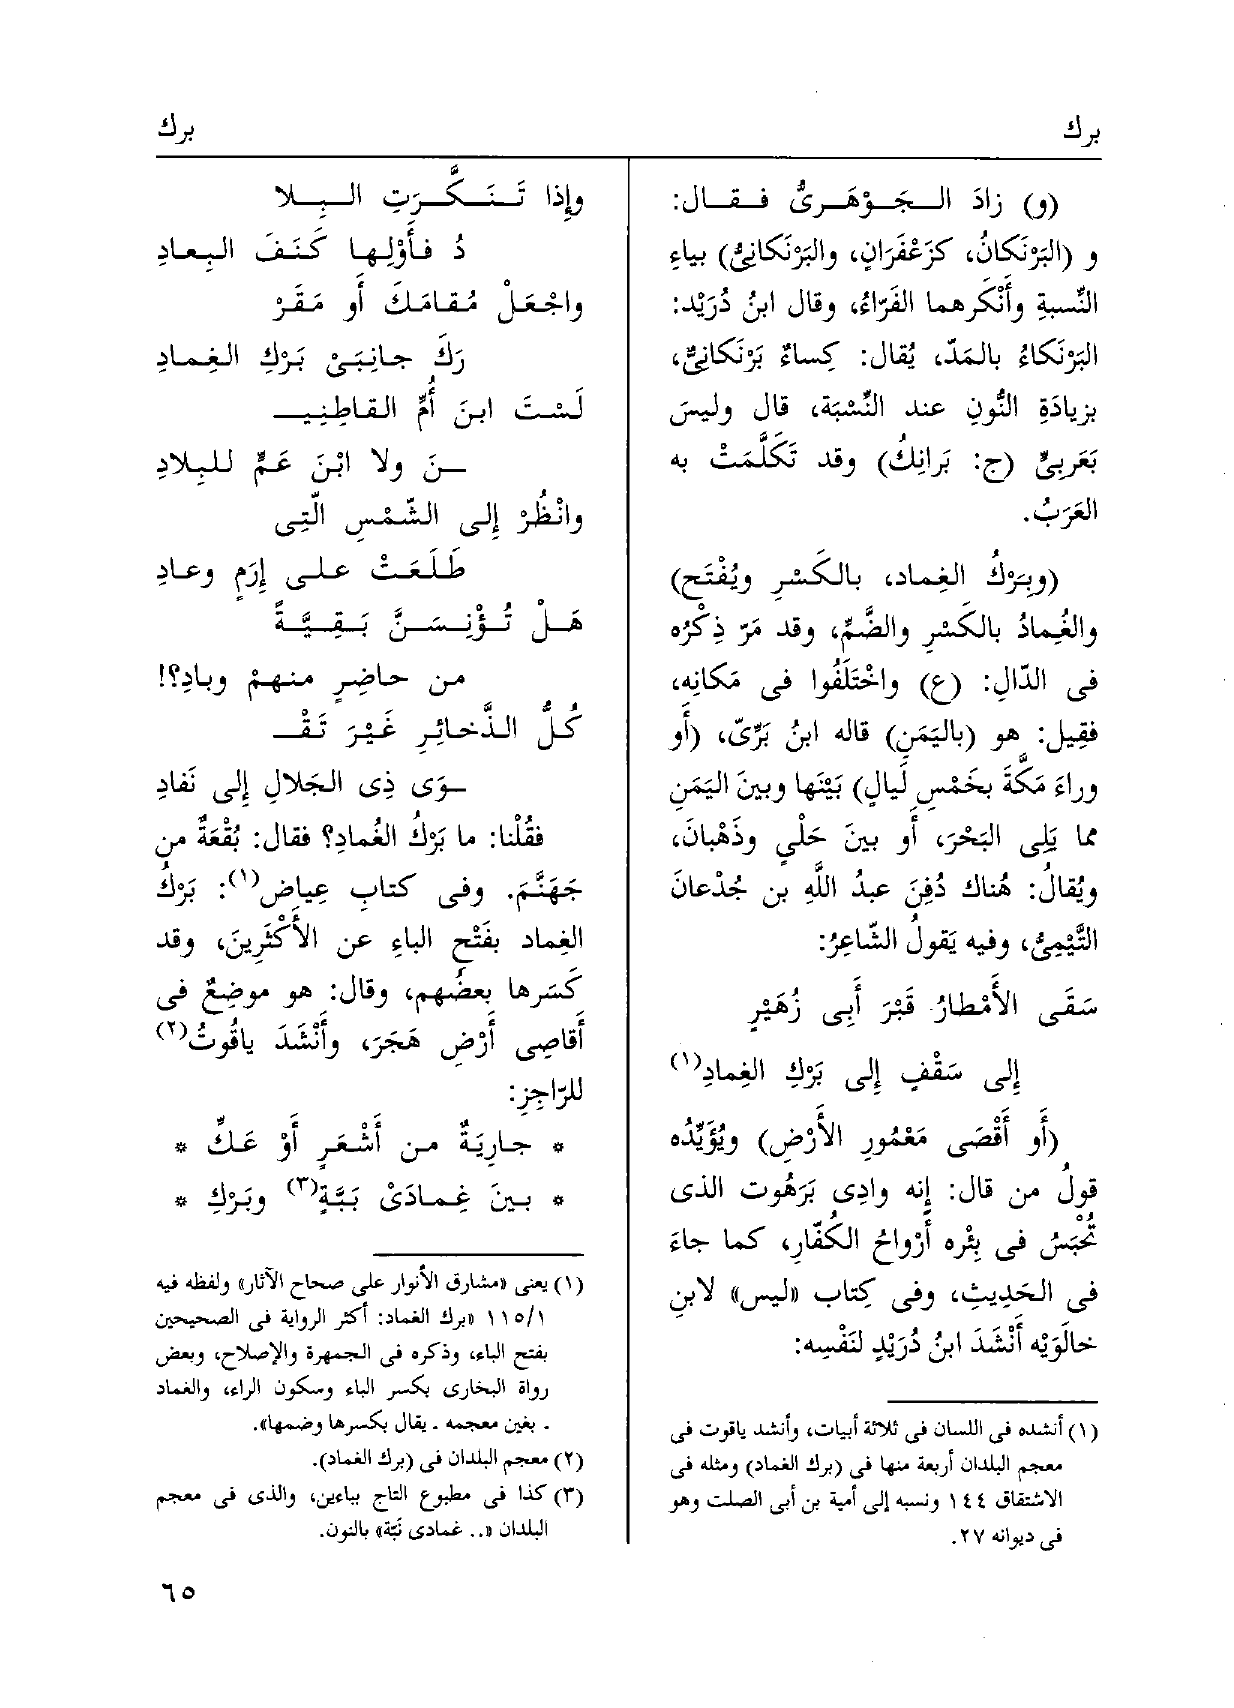 برك
برك
(و) زادَ الـجَـوْهَـرِىُّ فـقـال:
و (البَرْنَكانُ، كزَعْفَرَانٍ، والبَرْنَكانِىُّ) بياءِ
النِّسبةِ وأَنْكَرهما الفَرّاءُ، وقال ابنُ دُرَيْد:
البَرْنَكاءُ بالمَدّ، يُقال: كِساءٌ بَرْنَكانِىٌّ،
بزيادَةِ النُّونِ عند النِّسْبَة، قال وليسَ
بَعَربِىٍّ (ج: بَرانِكُ) وقد تَكَلَّمَتْ به
العَرَبُ.
(وبِرْكُ الغِماد، بالكَسْرِ ويُفْتَح)
والغُِمادُ بالكَسْرِ والضَّمِّ، وقد مَرّ ذِكْرُه
فى الدّالِ: (ع) واخْتَلَفُوا فى مَكانِه،
فقِيل: هو (باليَمَنِ) قاله ابنُ بَرِّىّ، (أَو
وراءَ مَكَّةَ بخَمْسِ لَيالٍ) بَيْنَها وبينَ اليَمَنِ
مما يَلِى البَحْرَ، أَو بينَ حَلْىٍ وذَهْبانَ،
ويُقالُ: هُناك دُفِنَ عبدُ اللَّهِ بن جُدْعانَ
التَّيْمِىُّ، وفيه يَقولُ الشّاعِرُ:
سَقَى الأَمْطارُ قَبْرَ أَبِى زُهَيْرٍ
إِلى سَقْفٍ إِلى بَرْكِ الغِمادِ(١)
(أَو أَقْصَى مَعْمُورِ الأَرْضِ) ويُؤَيِّدُه
قولُ من قال: إِنه وادِى بَرَهُوت الذى
تُحْبَسُ فى بِئْرِه أَرْواحُ الكُفّارِ، كما جاءَ
فى الحَدِيثِ، وفى كِتاب «ليس» لابنِ
خالَوَيْه أَنْشَدَ ابنُ دُرَيْدٍ لنَفْسِه:
(١) أنشده فى اللسان فى ثلاثة أبيات، وأنشد ياقوت فى
معجم البلدان أربعة منها فى (برك الغماد) ومثله فى
الاشتقاق ١٤٤ ونسبه إلى أمية بن أبى الصلت وهو
فى ديوانه ٢٧.
وإِذا تَـنَـكَّـرَتِ الـبِـلا
دُ فـأَوْلِـها كَنَفَ البِعادِ
واجْعَلْ مُقامَكَ أَو مَقَرْ
رَكَ جانِبَىْ بَرْكِ الغِمادِ
لَسْتَ ابنَ أُمِّ القاطِنِيـ
ـنَ ولا ابْنَ عَمٍّ للبِلادِ
وانْظُرْ إِلى الشَّمْسِ الَّتِى
طَلَعَتْ على إِرَمٍ وعادِ
هَـلْ تُـؤْنِـسَـنَّ بَـقِـيَّـةً
من حاضِرٍ منهمْ وبادِ؟!
كُلُّ الذَّخائِرِ غَيْرَ تَقْـ
ـوَى ذِى الجَلالِ إِلى نَفادِ
فقُلْنا: ما بَرْكُ الغُمادِ؟ فقال: بُقْعَةٌ من
جَهَنَّمَ. وفى كتابِ عِياض(١): بَرْكُ
الغِماد بفَتْحِ الباءِ عن الأَكْثَرِينَ، وقد
كَسَرها بعضُهم، وقال: هو موضِعٌ فى
أَقاصِى أَرْضِ هَجَرَ، وأَنْشَدَ ياقُوتُ(٢)
للرّاجِزِ:
* جارِيَةٌ من أَشْعَرٍ أَوْ عَكِّ *
* بينَ غِمادَىْ بَبَّةٍ(٣) وبَرْكِ *
(١) يعنى «مشارق الأنوار على صحاح الآثار» ولفظه فيه
١١٥/١ «برك الغماد: أكثر الرواية فى الصحيحين
بفتح الباء، وذكره فى الجمهرة والإصلاح، وبعض
رواة البخارى بكسر الباء وسكون الراء، والغماد
. بغين معجمه . يقال بكسرها وضمها».
(٢) معجم البلدان فى (برك الغماد).
(٣) كذا فى مطبوع التاج بباءين، والذى فى معجم
البلدان «.. غمادى نَبّة» بالنون.
٦٥